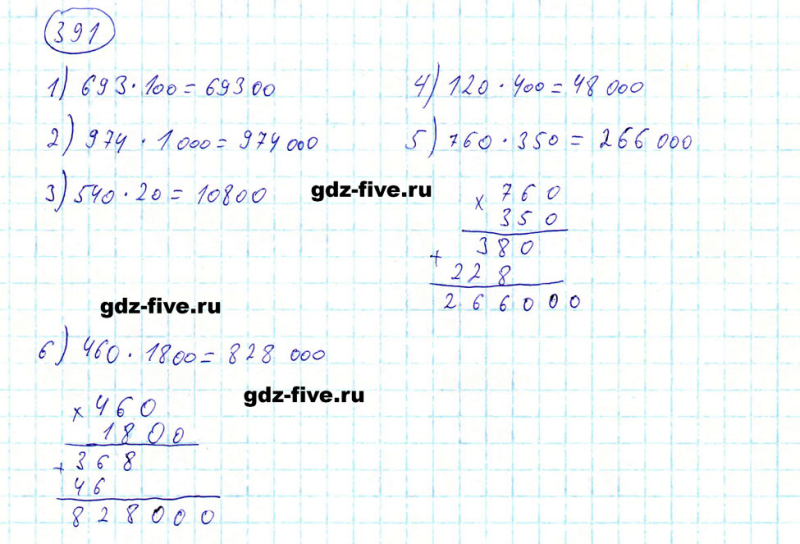 391
1) 693 · 100 = 69300
2) 974 · 1000 = 974000
3) 540 · 20 = 10800
4) 120 · 400 = 48000
5) 760 · 350 = 266000
gdz-five.ru
× 760
350
+ 380
228
266000
gdz-five.ru
6) 460 · 1800 = 828 000
gdz-five.ru
× 460
1800
+ 368
46
828000